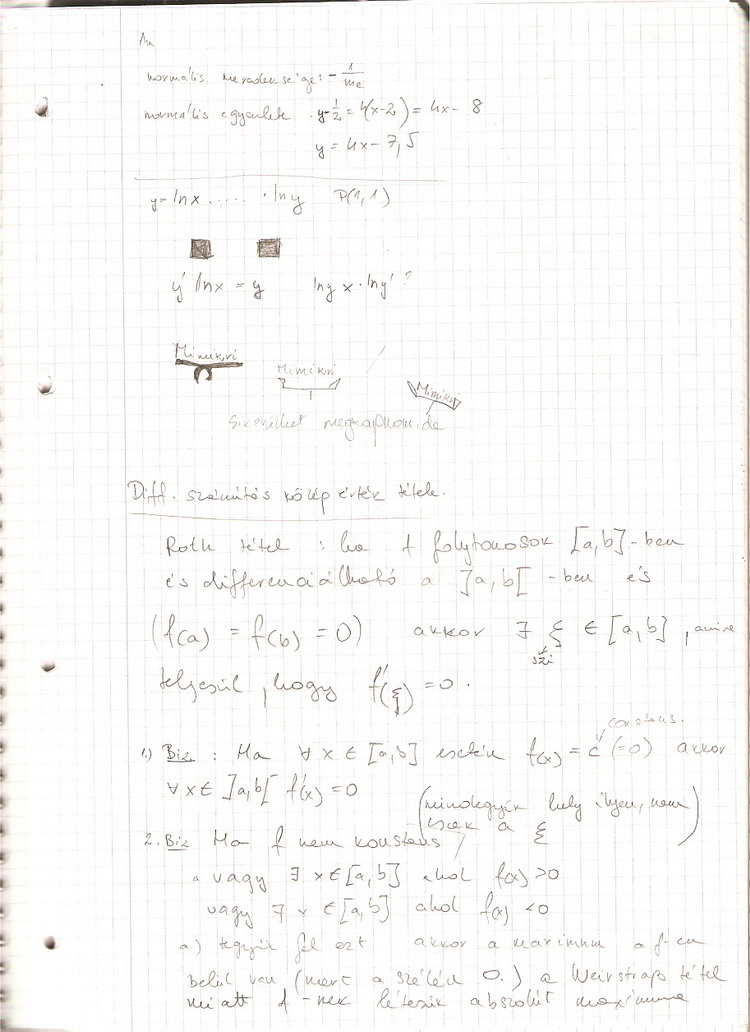 An
normális meredensége: - 1/me
normális egyenlete y-1/2 = 4(x-2) = 4x - 8
y = 4x - 7,5
y = lnx ..... · lny P(1,1)
y' lnx = y lny x · lny' ?
Mimikri
Mimikri
Mimikri
megkapnom de
Diff. számítás közép érték tétele.
Roth tétel : ha f folytonosok [a,b]-ben
és differenciálható a ]a,b[ -ben és
(f(a) = f(b) = 0) akkor ∃ ξ ∈ [a,b] , amire
szi
teljesül, hogy f'(ξ) = 0.
constans.
1.) Biz : Ha ∀ x ∈ [a,b] esetén f(x) = c (=0) akkor
∀ x ∈ ]a,b[ f'(x) = 0
(mindegyik hely ilyen, nem
csak a ξ)
2. Biz Ha f nem konstans
a vagy ∃ x ∈ [a,b] ahol f(x) > 0
vagy ∃ x ∈ [a,b] ahol f(x) < 0
a) tegyük fel ezt akkor a maximum a f-en
belül van (mert a szélén 0.) a Weirstrap tétel
miatt f -nek létezik abszolút maximuma